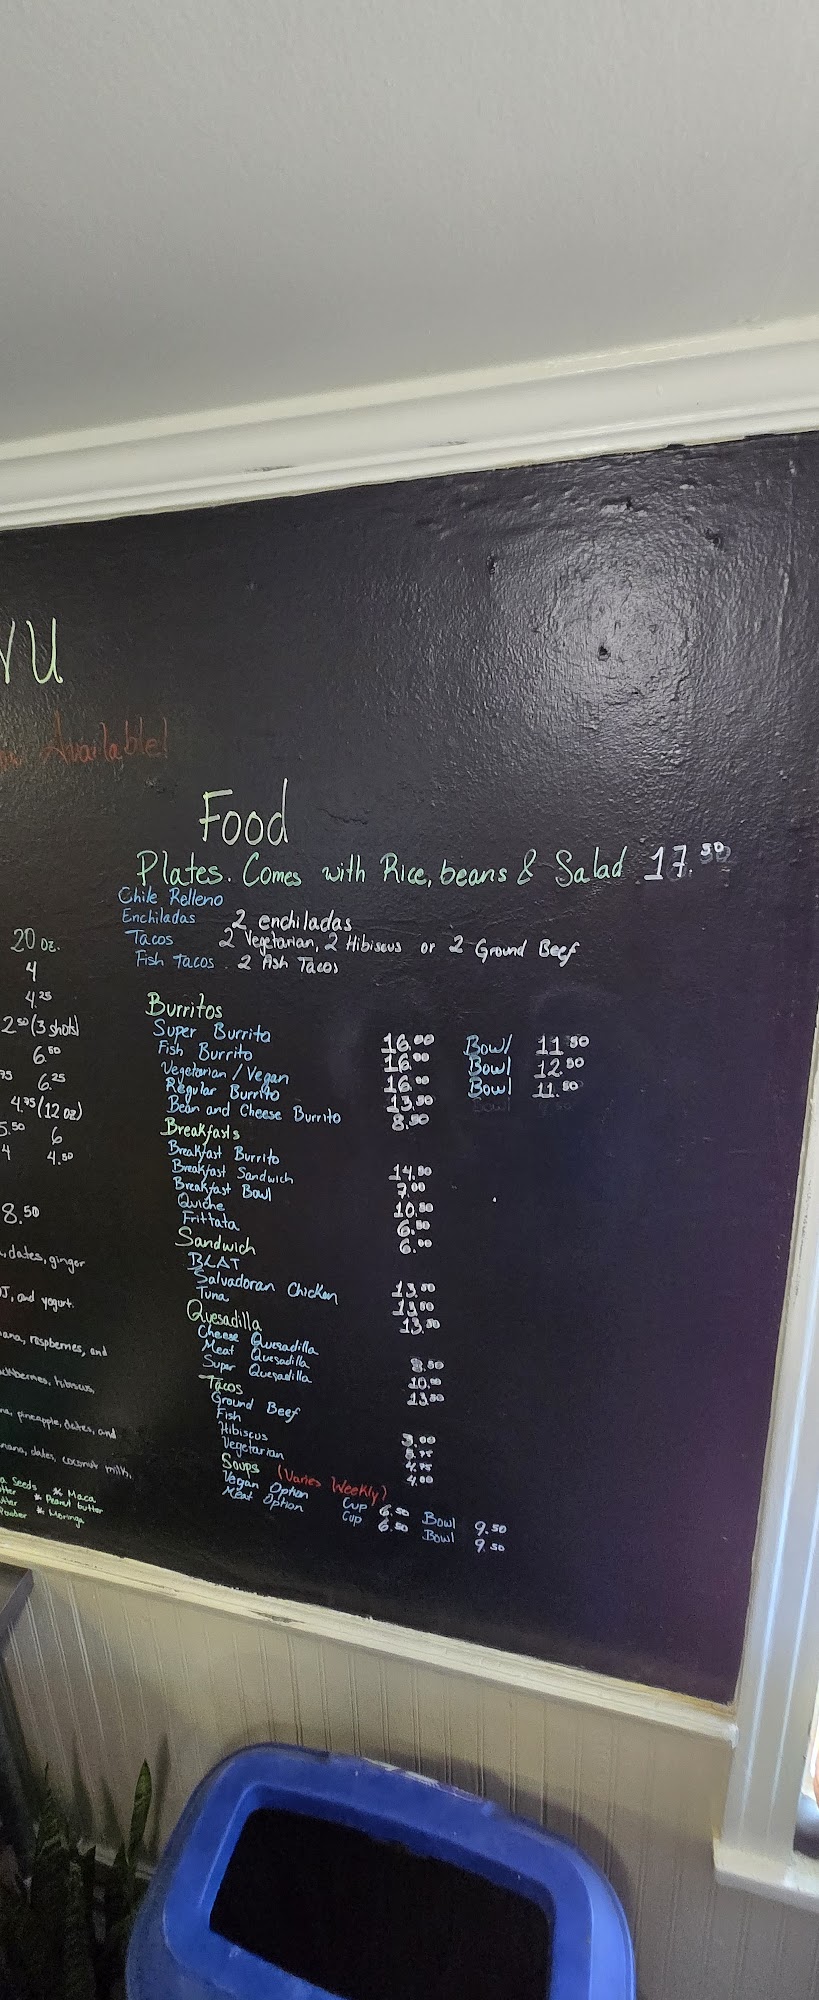 NU
Available!
Food
Plates. Comes with Rice, beans & Salad 17.50
Chile Relleno
Enchiladas 2 enchiladas
Tacos 2 Vegetarian, 2 Hibiscus or 2 Ground Beef
Fish tacos. 2 Fish Tacos
Burritos
Super Burrito 16.00 Bowl 11.50
Fish Burrito 16.00 Bowl 12.50
Vegetarian/Vegan 16.00 Bowl 11.50
Regular Burrito 13.50
Bean and Cheese Burrito 8.50
Breakfasts
Breakfast Burrito 14.50
Breakfast Sandwich 7.00
Breakfast Bowl 10.50
Quiche 6.50
Frittata 6.00
Sandwich
BLAT 13.50
Salvadoran Chicken
Tuna 13.50
Quesadilla
Cheese Quesadilla 8.50
Meat Quesadilla 10.00
Super Quesadilla 13.50
Tacos
Ground Beef
Fish
Hibiscus 4.75
Vegetarian 4.00
Soups (Varies Weekly)
Vegan Option Cup 6.50 Bowl 9.50
Meat Option Cup 6.50 Bowl 9.50
20 oz.
4
4.25
2.50 (3 shots)
6.50
75 6.25
4.75 (12 oz)
5.50 6
4 4.50
8.50
, dates, ginger
OJ, and yogurt.
ana, raspberries, and
ackberries, hibiscus,
na, pineapple, dates, and
nana, dates, coconut milk,
a Seeds * Maca
tter * Peanut butter
Powder * Moringa